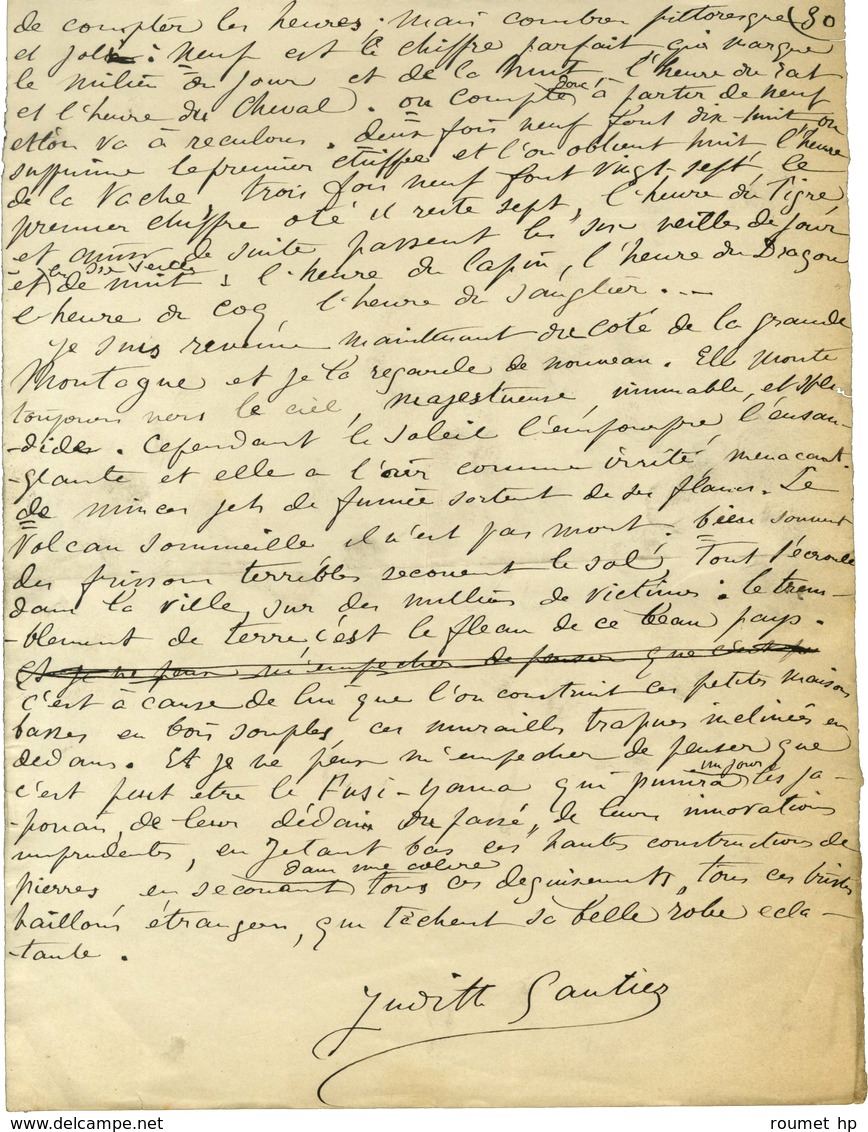 de compter les heures; mais combien pittoresque 30
et jolie : neuf est le chiffre parfait qui marque
le milieu du jour et de la nuit, l'heure du rat
et l'heure du Cheval. on compte donc à partir de neuf
et l'on va à reculons. deux fois neuf font dix-huit, on
supprime le premier chiffre et l'on obtient huit, l'heure
de la Vache, trois fois neuf font vingt-sept le
premier chiffre oté il reste sept, l'heure du Tigre,
et ainsi de suite passent les six veilles de jour
et les six veilles de nuit : l'heure du lapin, l'heure du Dragon
l'heure du Coq, l'heure du Sanglier...
Je suis revenue maintenant du coté de la grande
Montagne et je la regarde de nouveau. Elle monte
toujours vers le ciel, majestueuse, immuable, et splen
-dide. Cependant le soleil l'empourpre, l'ensan-
-glante et elle a l'air comme irrité, menaçant.
de minces jets de fumée sortent de ses flancs. Le
Volcan sommeille il n'est pas mort. bien souvent
des frissons terribles secouent le sol, Tout s'écroule
dans la ville, sur des milliers de victimes : le trem-
-blement de terre, c'est le fléau de ce beau pays.
Et je ne peux m'empecher de penser que c'est
c'est à cause de lui que l'on construit ces petites maisons
basses en bois souples, ces murailles trapues inclinées en
dedans. Et je ne peux m'empecher de penser que
c'est peut etre le Fusi-yama qui punira un jour les ja-
-ponais, de leur dédain du passé, de leurs innovations
imprudentes, en jetant bas ces hautes constructions de
pierres en secouant dans une colère tous ces déguisements, tous ces tristes
haillons étrangers, qui tâchent sa belle robe écla-
-tante.
Judith Gautier
roumet hp